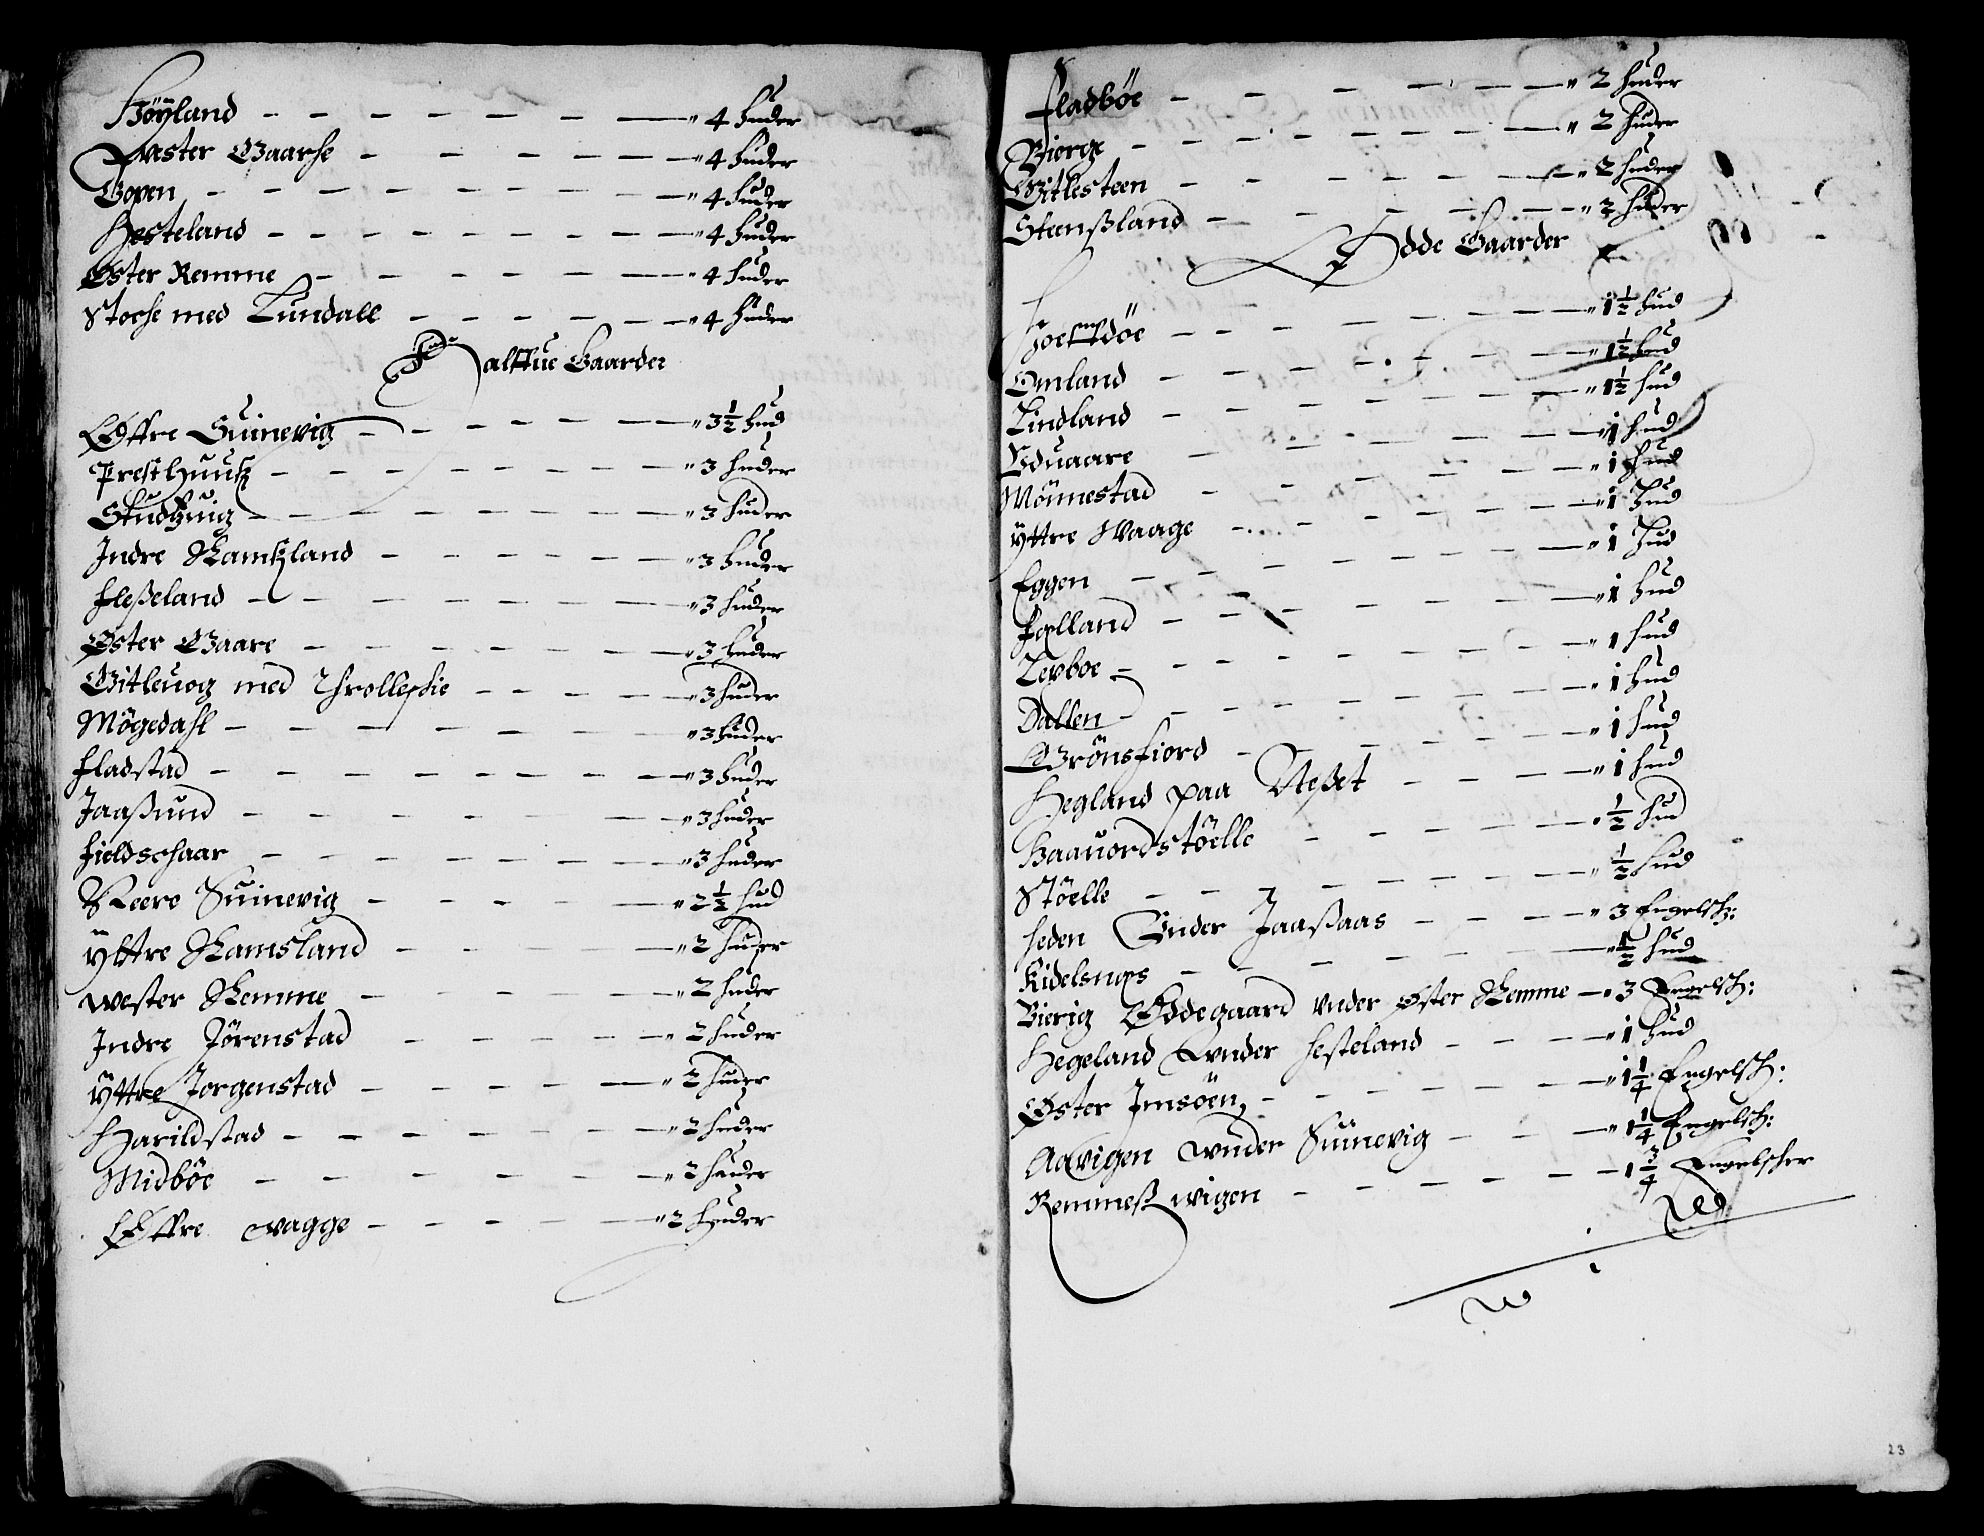 Höyland - - - - - - - - " 4 Huder
Vester Gaarse - - - - - - " 4 huder
Gopen - - - - - - - - - " 4 huder
Hesteland - - - - - - - - " 4 huder
Øster Remme - - - - - - - " 4 huder
Stocke med Lundall - - - - - - " 4 huder
Halffue Gaarder
Øffre Suinevig - - - - - - " 3½ hud
Presthuus - - - - - - - - " 3 huder
Studtzuig - - - - - - - - " 3 huder
Indre Ramsland - - - - - - " 3 huder
fleßeland - - - - - - - " 3 huder
Øster Gaare - - - - - - - " 3 huder
Gitleuog med Throllepschie - - - - " 3 huder
Mögedahl - - - - - - - " 3 huder
fladstad - - - - - - - - " 3 huder
Jaaßund - - - - - - - " 3 huder
fieldschaar - - - - - - - " 3 huder
Neere Suinevig - - - - - " 2½ hud
Ÿttre Ramsland - - - - - " 2 huder
wester Remme - - - - - - " 2 huder
Indre Jörenstad - - - - - " 2 huder
Ÿttre Jorgenstad - - - - - " 2 huder
Harildstad - - - - - - - " 2 huder
Midböe - - - - - - - " 2 huder
Øffre vagge - - - - - - " 2 huder
fladböe - - - - - - - " 2 huder
Biorge - - - - - - - - " 2 huder
Gitlesteen - - - - - - - " 2 huder
Steenßland - - - - - - - " 2 huder
Ødde Gaarder
- - - - - - - " 1½ hud
Omland - - - - - - - " 1½ hud
Lindland - - - - - - - " 1½ hud
Eduaare - - - - - - - " 1 hud
Mönnestad - - - - - - - " 1 hud
Ÿttre Waage - - - - - - " 1 hud
Eggen - - - - - - - - " 1 hud
Jølland - - - - - - - - " 1 hud
Levboe - - - - - - - - " 1 hud
Dallen - - - - - - - - " 1 hud
Grönsfiord - - - - - - - " 1 hud
Hegland paa Neßet - - - - " 1 hud
Haauordstöelle - - - - - " ½ hud
Stöelle - - - - - - - - " ½ hud
heden Vnder Jaaßaas - - - - " 3 Engelsch:
Kidelsnæs - - - - - - - " ½ hud
Bierig Øddegaard vnder Øster Remme - " 3 Engelsch:
Hegeland Vnder hesteland - - - - " 1 hud
Øster Imsöen, - - - - - - - " 1¼ Engelsch:
Aavigen vnder Suinevig - - - " 1¼ Engelsch:
Remmeß wigen - - - - - - 1¾ Engelscher
23